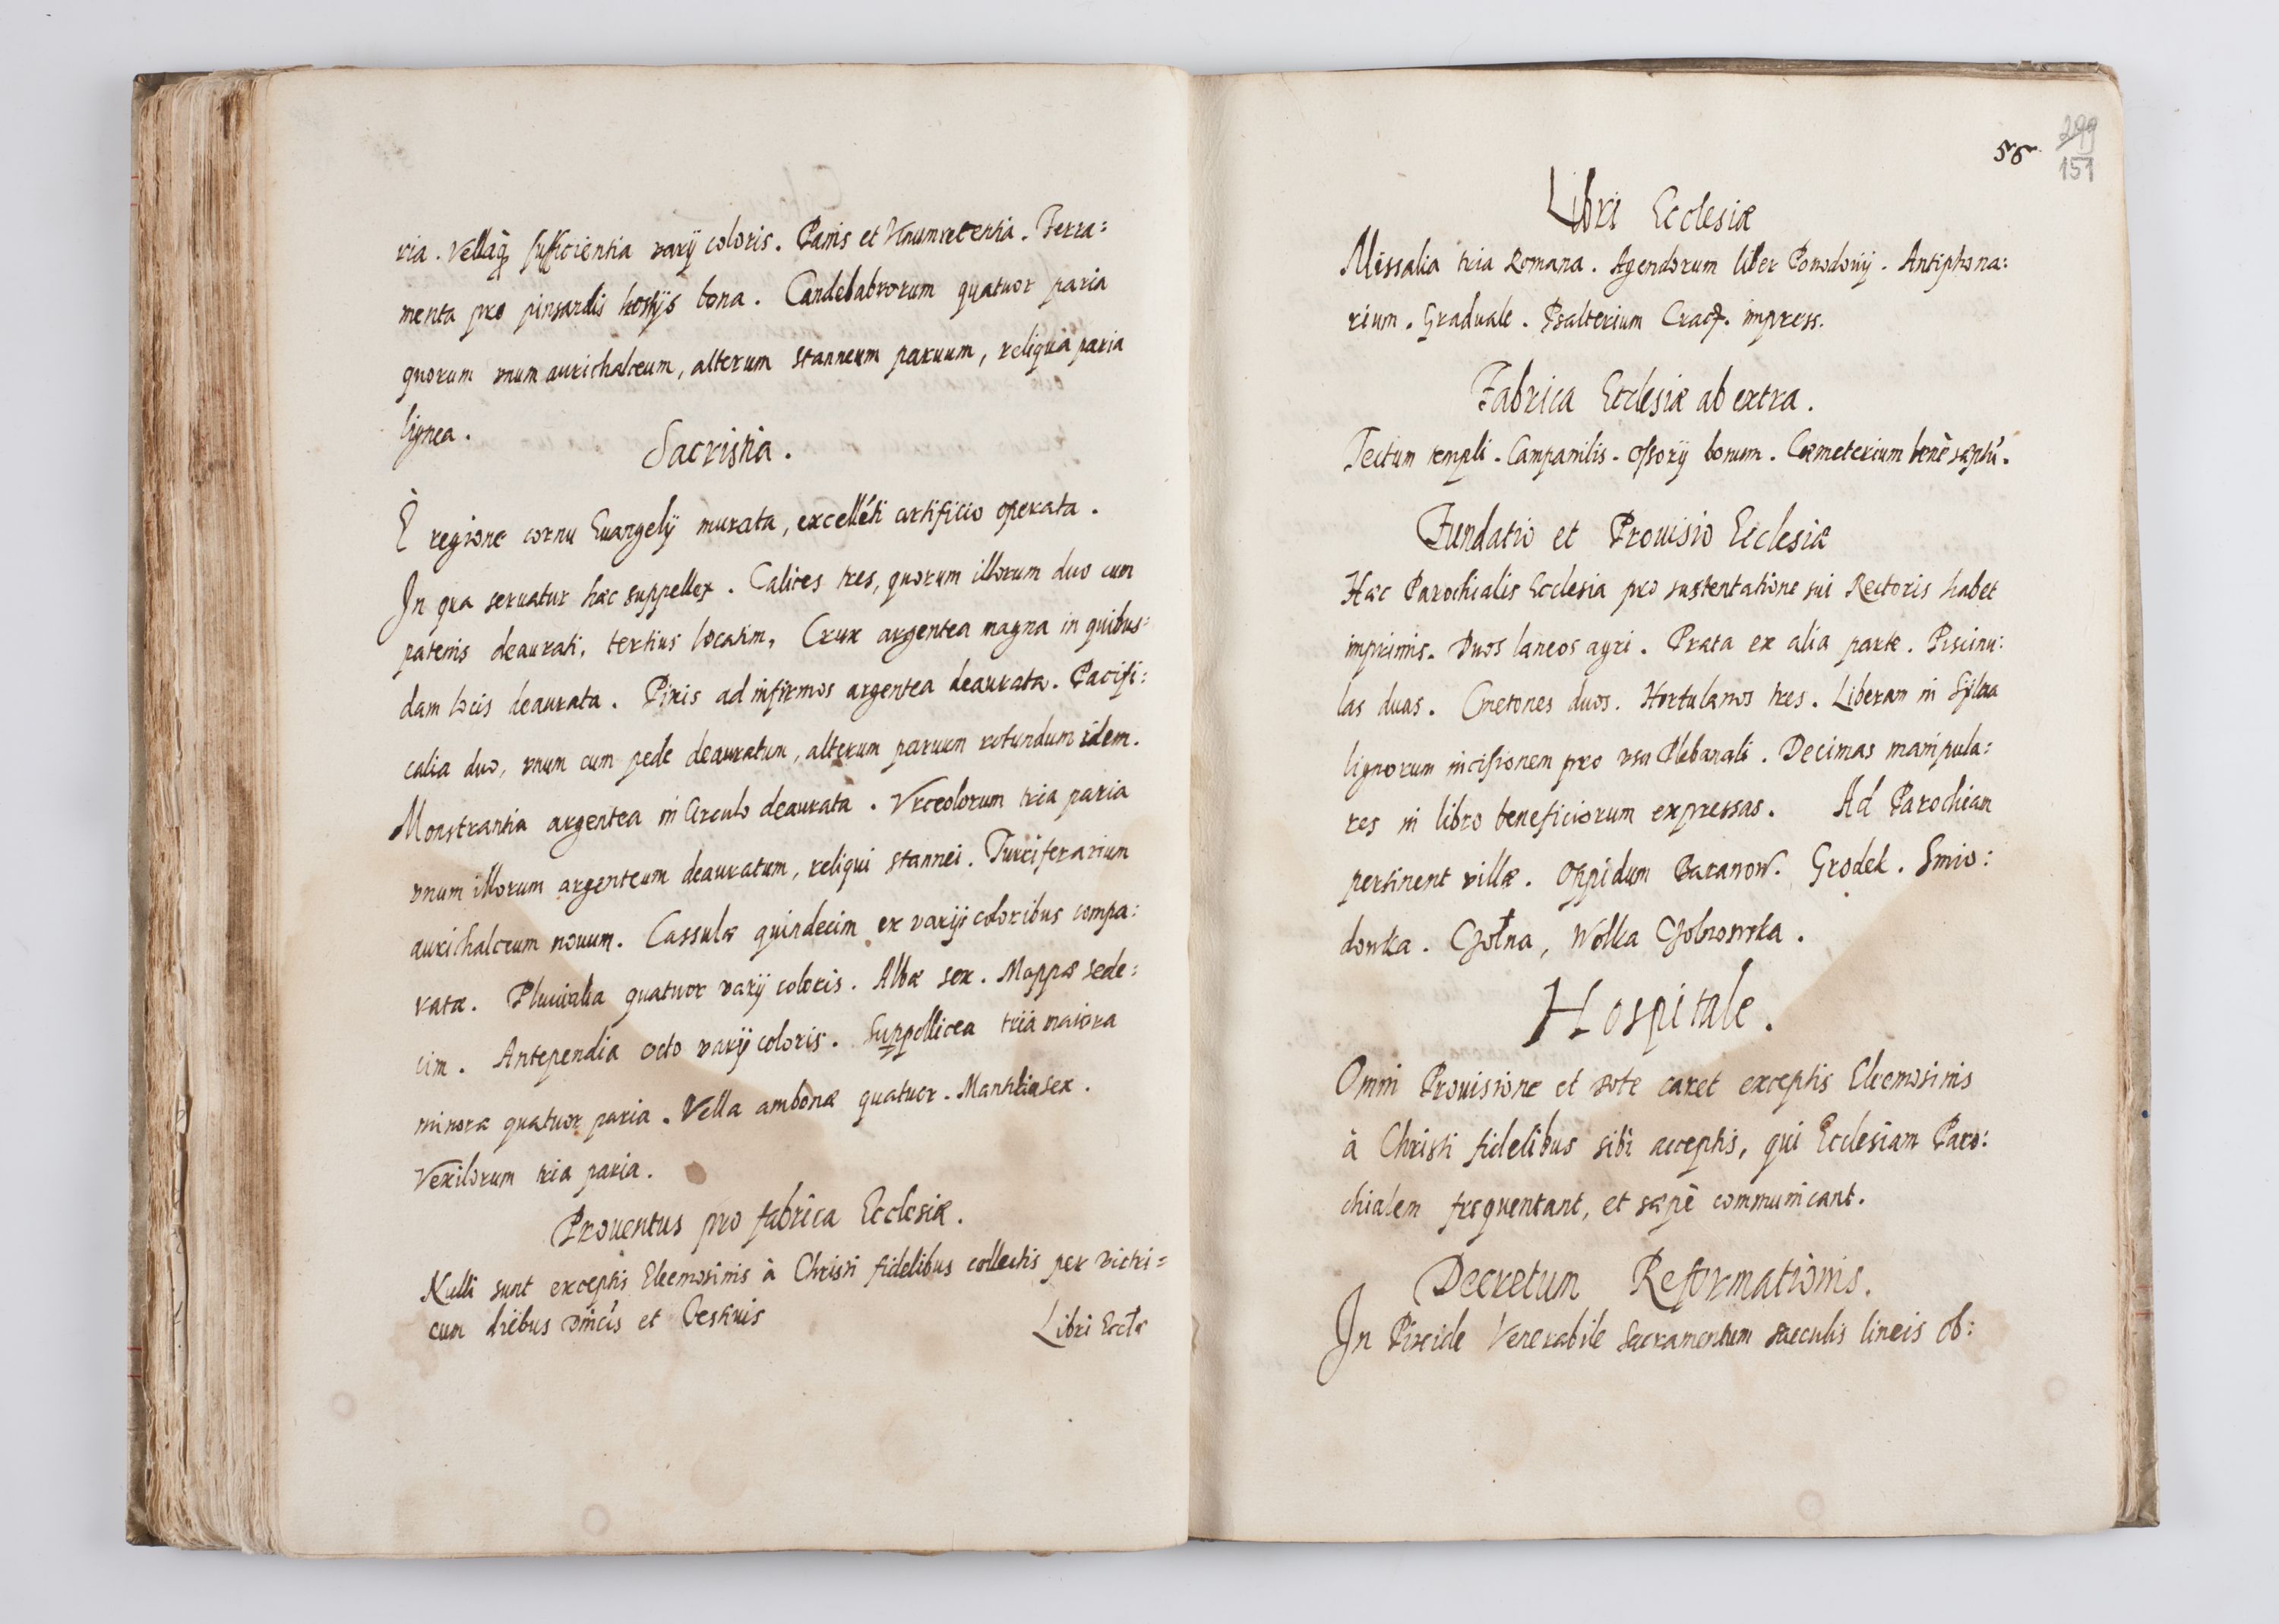 ria. Vellaq̃ sufficientia varij coloris. Panis et Vinum recentia. Ferra:
menta pro pinsandis hostijs bona. Candelabrorum quatuor paria
quorum vnum aurichalceum, alterum stanneum paruum, reliqua paria
lignea.
Sacristia.
È regione cornu Euangelij murata, excellẽti artificio operata.
In qua seruatur hæc suppellex. Calices tres, quorum illorum duo cum
patenis deaurati, tertius locatim, Crux argentea magna in quibus=
dam locis deaurata. Pixis ad infirmos argentea deaurata. Pacifi:
calia duo, vnum cum pede deauratum, alterum paruum rotundum idem.
Monstrantia argentea in Circulo deaurata. Vrceolorum tria paria
vnum illorum argenteum deauratum, reliqui stannei. Turriferarium
aurichalceum nouum. Cassulæ quindecim ex varijs coloribus compa:
ratæ. Pluuialia quatuor varij coloris. Albæ sex. Mappæ sede:
cim. Antependia octo varij coloris. Suppellicea tria maiora
minora quatuor paria. Vella ambonæ quatuor. Mantilia sex.
Vexilorum tria paria.
Prouentus pro fabrica Ecclesiæ.
Nulli sunt exceptis Eleemosinis à Christi fidelibus collectis per victri=
cum diebus dñicis et Festiuis
Libri Eccłæ
58
299
151
Libri Ecclesiæ
Missalia tria Romana. Agendorum liber Powodowij. Antiphona:
rium. Graduale. Psalterium Crac. impress.
Fabrica Ecclesiæ ab extra.
Tectum templi. Campanilis. Ossorij bonum. Cœmeterium benè sæptũ.
Fundatio et Prouisio Ecclesiæ
Hæc Parochialis Ecclesia pro sustentatione sui Rectoris habet
inprimis. Duos laneos agri. Prata ex alia parte. Piscinu:
las duas. Cmetones duos. Hortulanos tres. Liberam in Sylua
lignorum incisionem pro vsu Plebanali. Decimas manipula:
res in libro beneficiorum expressas. Ad Parochiam
pertinent villæ. Oppidum Baranow. Grodek. Smio:
dowka. Czołna, Wolka Czołnowska.
Hospitale.
Omni Prouisione et dote caret exceptis Eleemosinis
à Christi fidelibus sibi acceptis, qui Ecclesiam Paro:
chialem frequentant, et sæpè communicant.
Decretum Reformationis.
In Pixide Venerabile Sacramentum sacculis lineis ob: